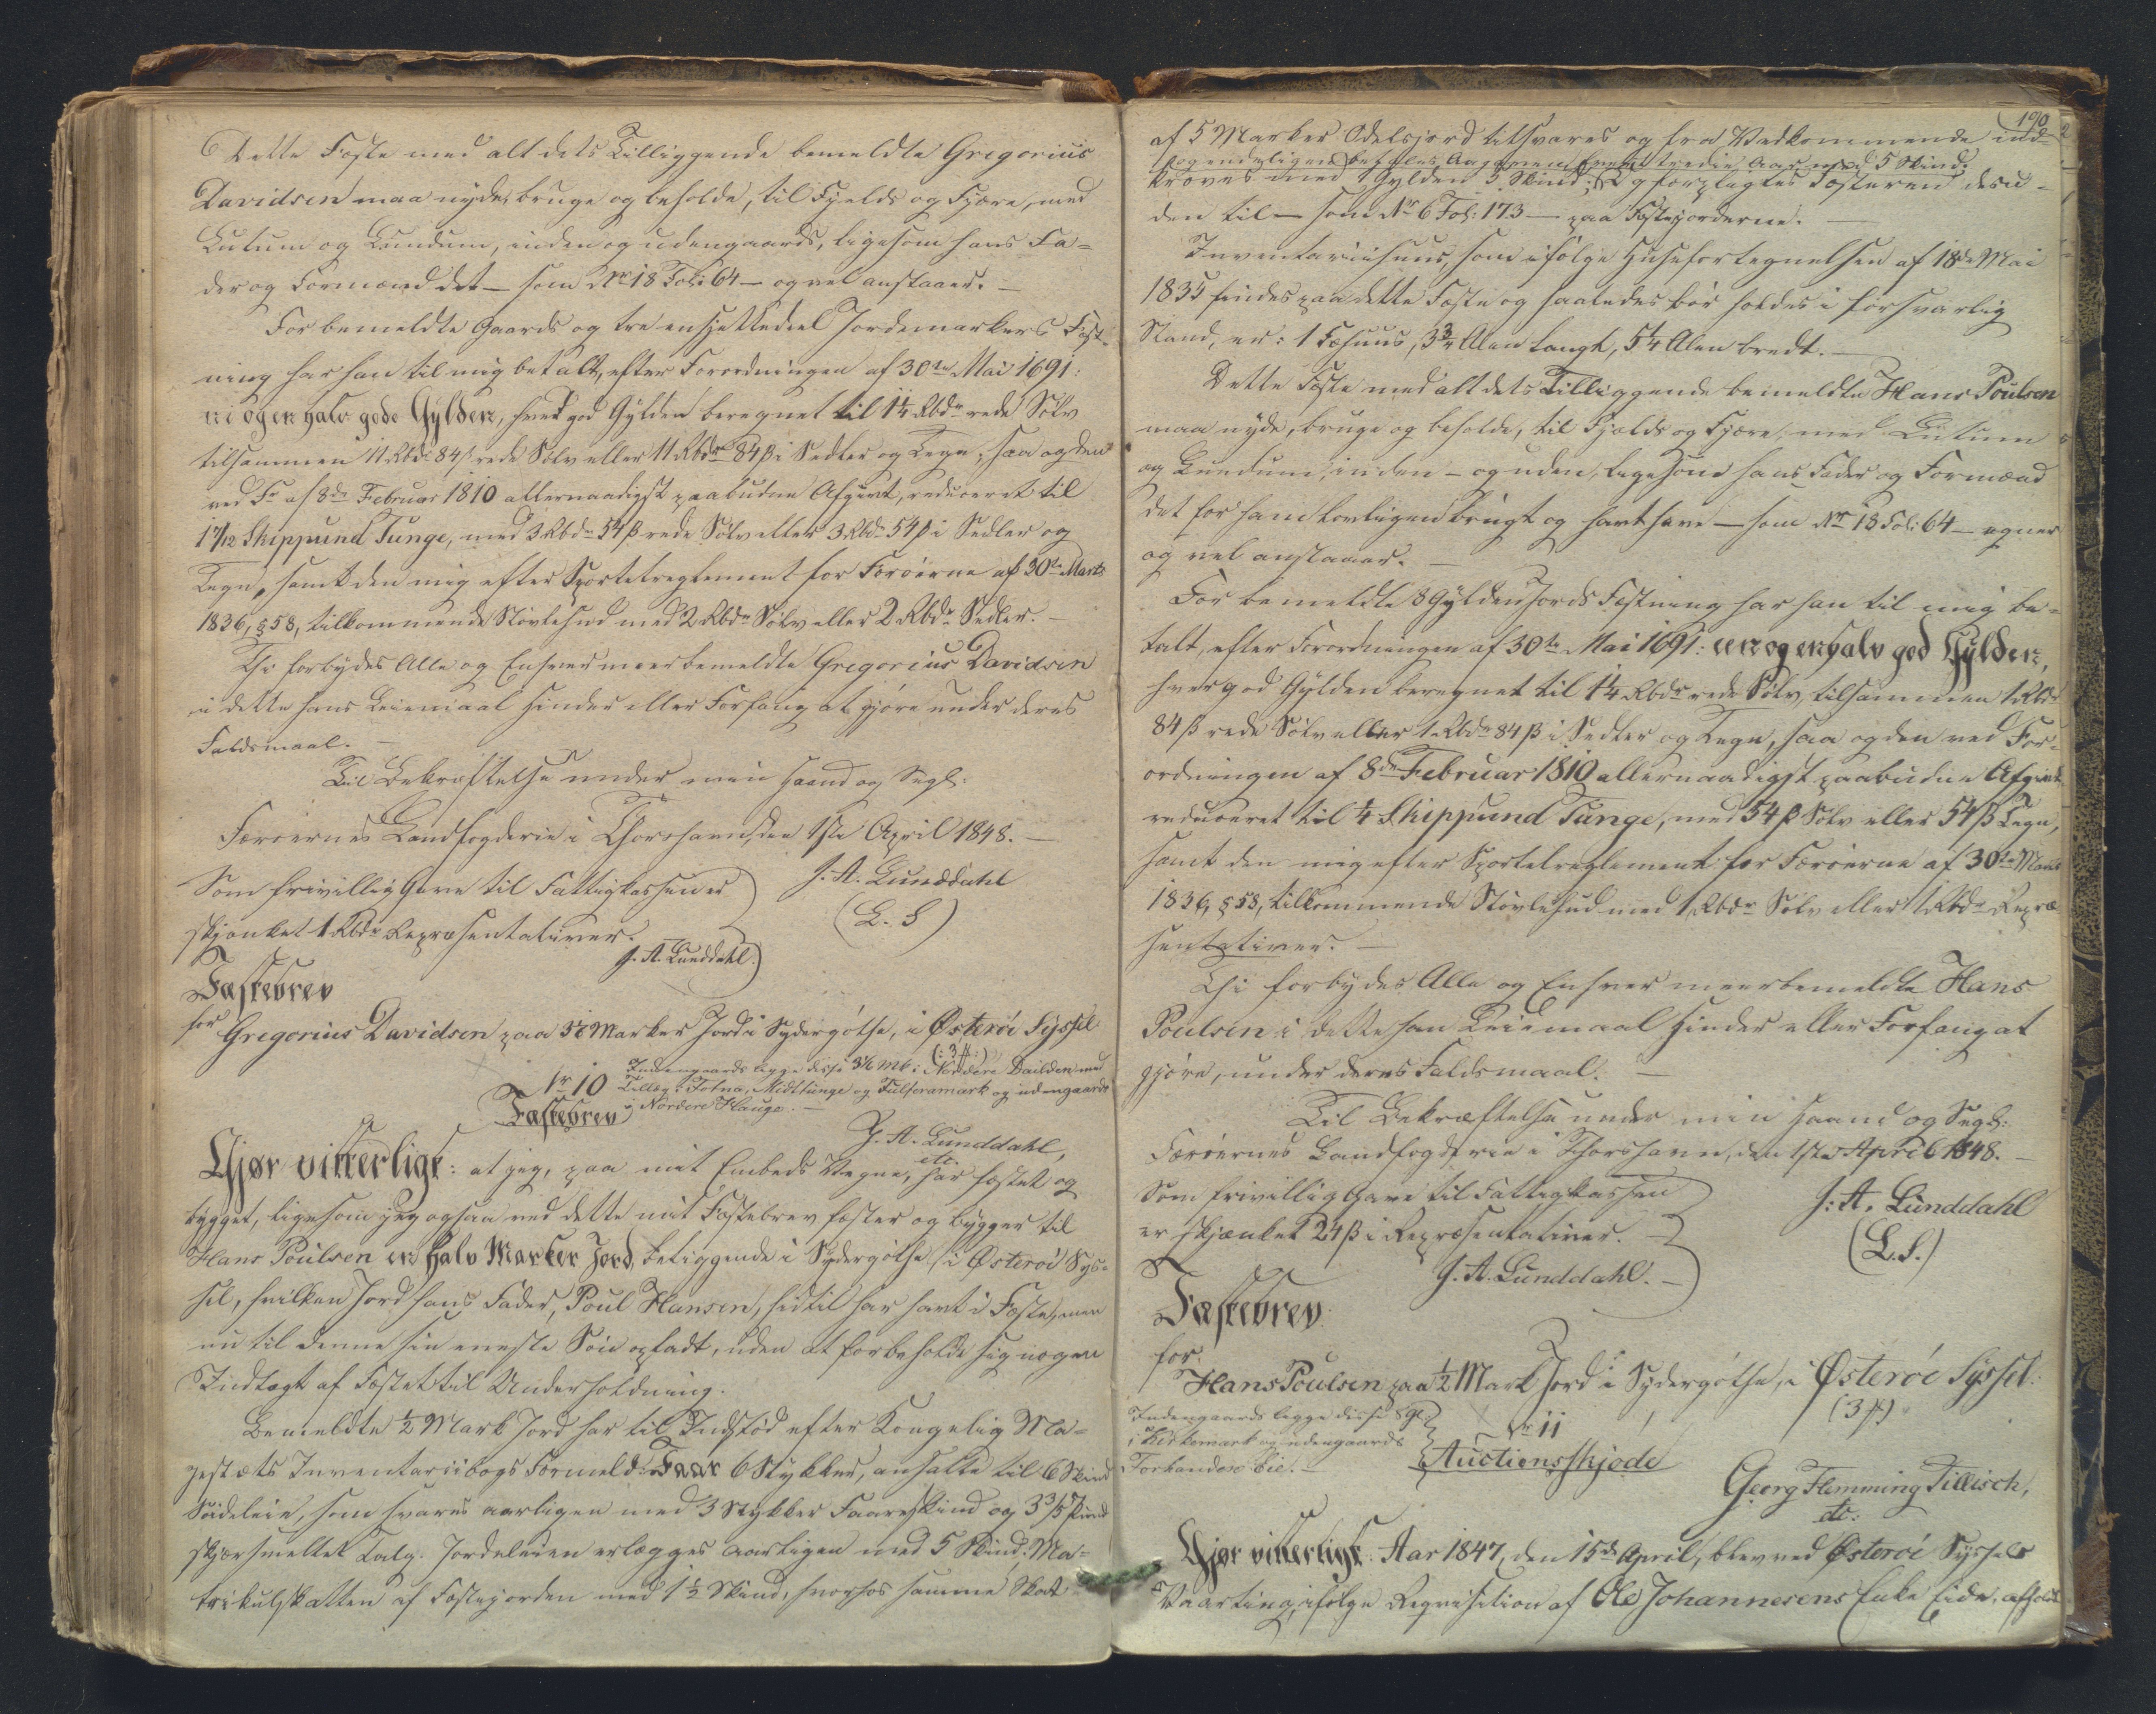 Dette Fæste med alt dets Tilliggende bemeldte Gregorius
Davidsen maa nyde, bruge og beholde, til Fjelds og Fjære, med
Lutum og Lundum, inden og udengaards, ligesom hans Fa-
der og Formænd det – som Nr 18 Fol: 64 – og vel anstaaer. –
For bemeldte Gaards og tre en sjettedeel Jordemarkers Fæst-
ning har han til mig betalt, efter Forordningen af 30te Mai 1691:
ni og en halv gode Gylden, hver god Gylden beregnet til 1¼ Rbdr rede Sølv
tilsammen 11 Rbd: 84 ß rede Sølv eller 11 Rbdr 84 ß i Sedler og Tegn, saa og den
ved Fr af 8de Februar 1810 allernaadigst paabudne Afgivt, reduceret til
1 7/12 Skippund Tunge, med 3 Rbdr 54 ß rede Sølv eller 3 Rbdr 54 ß i Sedler og
Tegn, samt den mig efter Sportelreglement for Færøerne af 30te Marts
1836, § 58, tilkommende Støvlehud med 2 Rbdr Sølv eller 2 Rbdr Sedler. –
Thi forbydes Alle og Enhver meerbemeldte Gregorius Davidsen
i dette hans Leiemaal Hinder eller Forfang at gjøre under deres
Faldsmaal. –
Til Bekræftelse under min Haand og Segl:
Færøernes Landfogderie i Thorshavn, den 1ste April 1848. –
Som frivillig Gave til Fattigkassen er
J. A. Lunddahl
skjænket 1 Rbdr Repræsentativer.
(L. S)
J. A. Lunddahl.
Fæstebrev
for Gregorius Davidsen paa 3⅙ Marker Jord i Sydergøthe, i Østerøe Syssel
(: 3 #:)
Indengaards ligge disse 3⅙ Mk: i Nordere Dailden med
Nr 10 Tillæg: Totna, Midttunge og Tulseramark og udengaards
Fæstebrev i Nordere Hauge. –
J. A. Lunddahl,
etc.
Gjør vitterligt: at jeg, paa mit Embeds Vegne, har fæstet og
bygget, ligesom jeg ogsaa ved dette mit Fæstebrev fæster og bygger til
Hans Poulsen en halv Marker Jord, beliggende i Sydergøthe, i Østerøe Sys-
sel, hvilken Jord hans Fader, Poul Hansen, hidtil har havt i Fæste, men
nu til denne sin eneste Søn opladt, uden at forbeholde sig nogen
Indtægt af Fæstet til Underholdning.
Bemeldte ½ Mark Jord har til Indstød efter Kongelig Ma-
jestæts Inventariibogs Formeld: Faar 6 Stykker, ansatte til 6 Skind
Sædeleie, som svares aarligen med 3 Stykker Faareskind og 3⅗ Pund
skjærsmeltet Talg. Jordeleien erlægges aarligen med 5 Skind. Ma-
trikulskatten af Fæstejorden med 1½ Skind, hvorhos samme Skat
190
af 5 Marker Odelsjord tilsvares og fra Vedkommende ind-
kræves med 1 Gylden 5 Skind; og forpligtes Fæsteren desu-
den til – som Nr 6 Fol: 173 – paa Fæstejorderne. –
Inventariihuus, som ifølge Huusefortegnelsen af 18de Mai
1835 findes paa dette Fæste og saaledes bør holdes i forsvarlig
Stand, er: 1 Fæhuus, 3¾ Alen langt, 5¼ Alen bredt. –
Dette Fæste med alt dets Tilliggende bemeldte Hans Poulsen
maa nyde, bruge og beholde, til Fjelds og Fjære, med Lutum
og Lundum, inden – og uden, ligesom hans Fader og Formænd
det før ham lovligen brugt og havt have – som Nr 18 Fol: 64 – egner
og vel anstaaer. –
For bemeldte 8 Gylden Jords Fæstning har han til mig be-
talt, efter Forordningen af 30te Mai 1691: een og en halv god Gylden,
hver god Gylden beregnet til 1¼ Rbdr rede Sølv, tilsammen 1 Rbdr
84 ß rede Sølv eller 1 Rbdr 84 ß i Sedler og Tegn, saa og den ved For-
ordningen af 8de Februar 1810 allernaadigst paabudne Afgivt
reduceret til ¼ Skippund Tunge, med 54 ß Sølv eller 54 ß Tegn,
samt den mig efter Sportelreglement for Færøerne af 30te Marts
1836, § 58, tilkommende Støvlehud med 1 Rbdr Sølv eller 1 Rbdr Repræ-
sentativer. –
Thi forbydes Alle og Enhver meerbemeldte Hans
Poulsen i dette han Leiemaal Hinder eller Forfang at
gjøre, under deres Faldsmaal. –
Til Bekræftelse under min Haand og Segl:
Færøernes Landfogderie i Thorshavn, den 1ste April 1848. –
Som frivillig Gave til Fattigkassen
J: A. Lunddahl
er skjænket 24 ß i Repræsentativer. –
(L. S.)
J. A. Lunddahl. –
Fæstebrev
for
Hans Poulsen paa ½ Mark Jord i Sydergøthe, i Østerøe Syssel.
(3 #)
Indengaards ligge disse 8 Gl.
i Kirkemark og udengaards
Nr 11
Auctionsskjøde
Georg Flemming Tillisch,
etc:
Gjør vitterligt: Aar 1847, den 15de April, blev ved Østerøe Syssels
Vaarting, ifølge Reqvisition af Ole Johannesens Enke Eide, afholdt